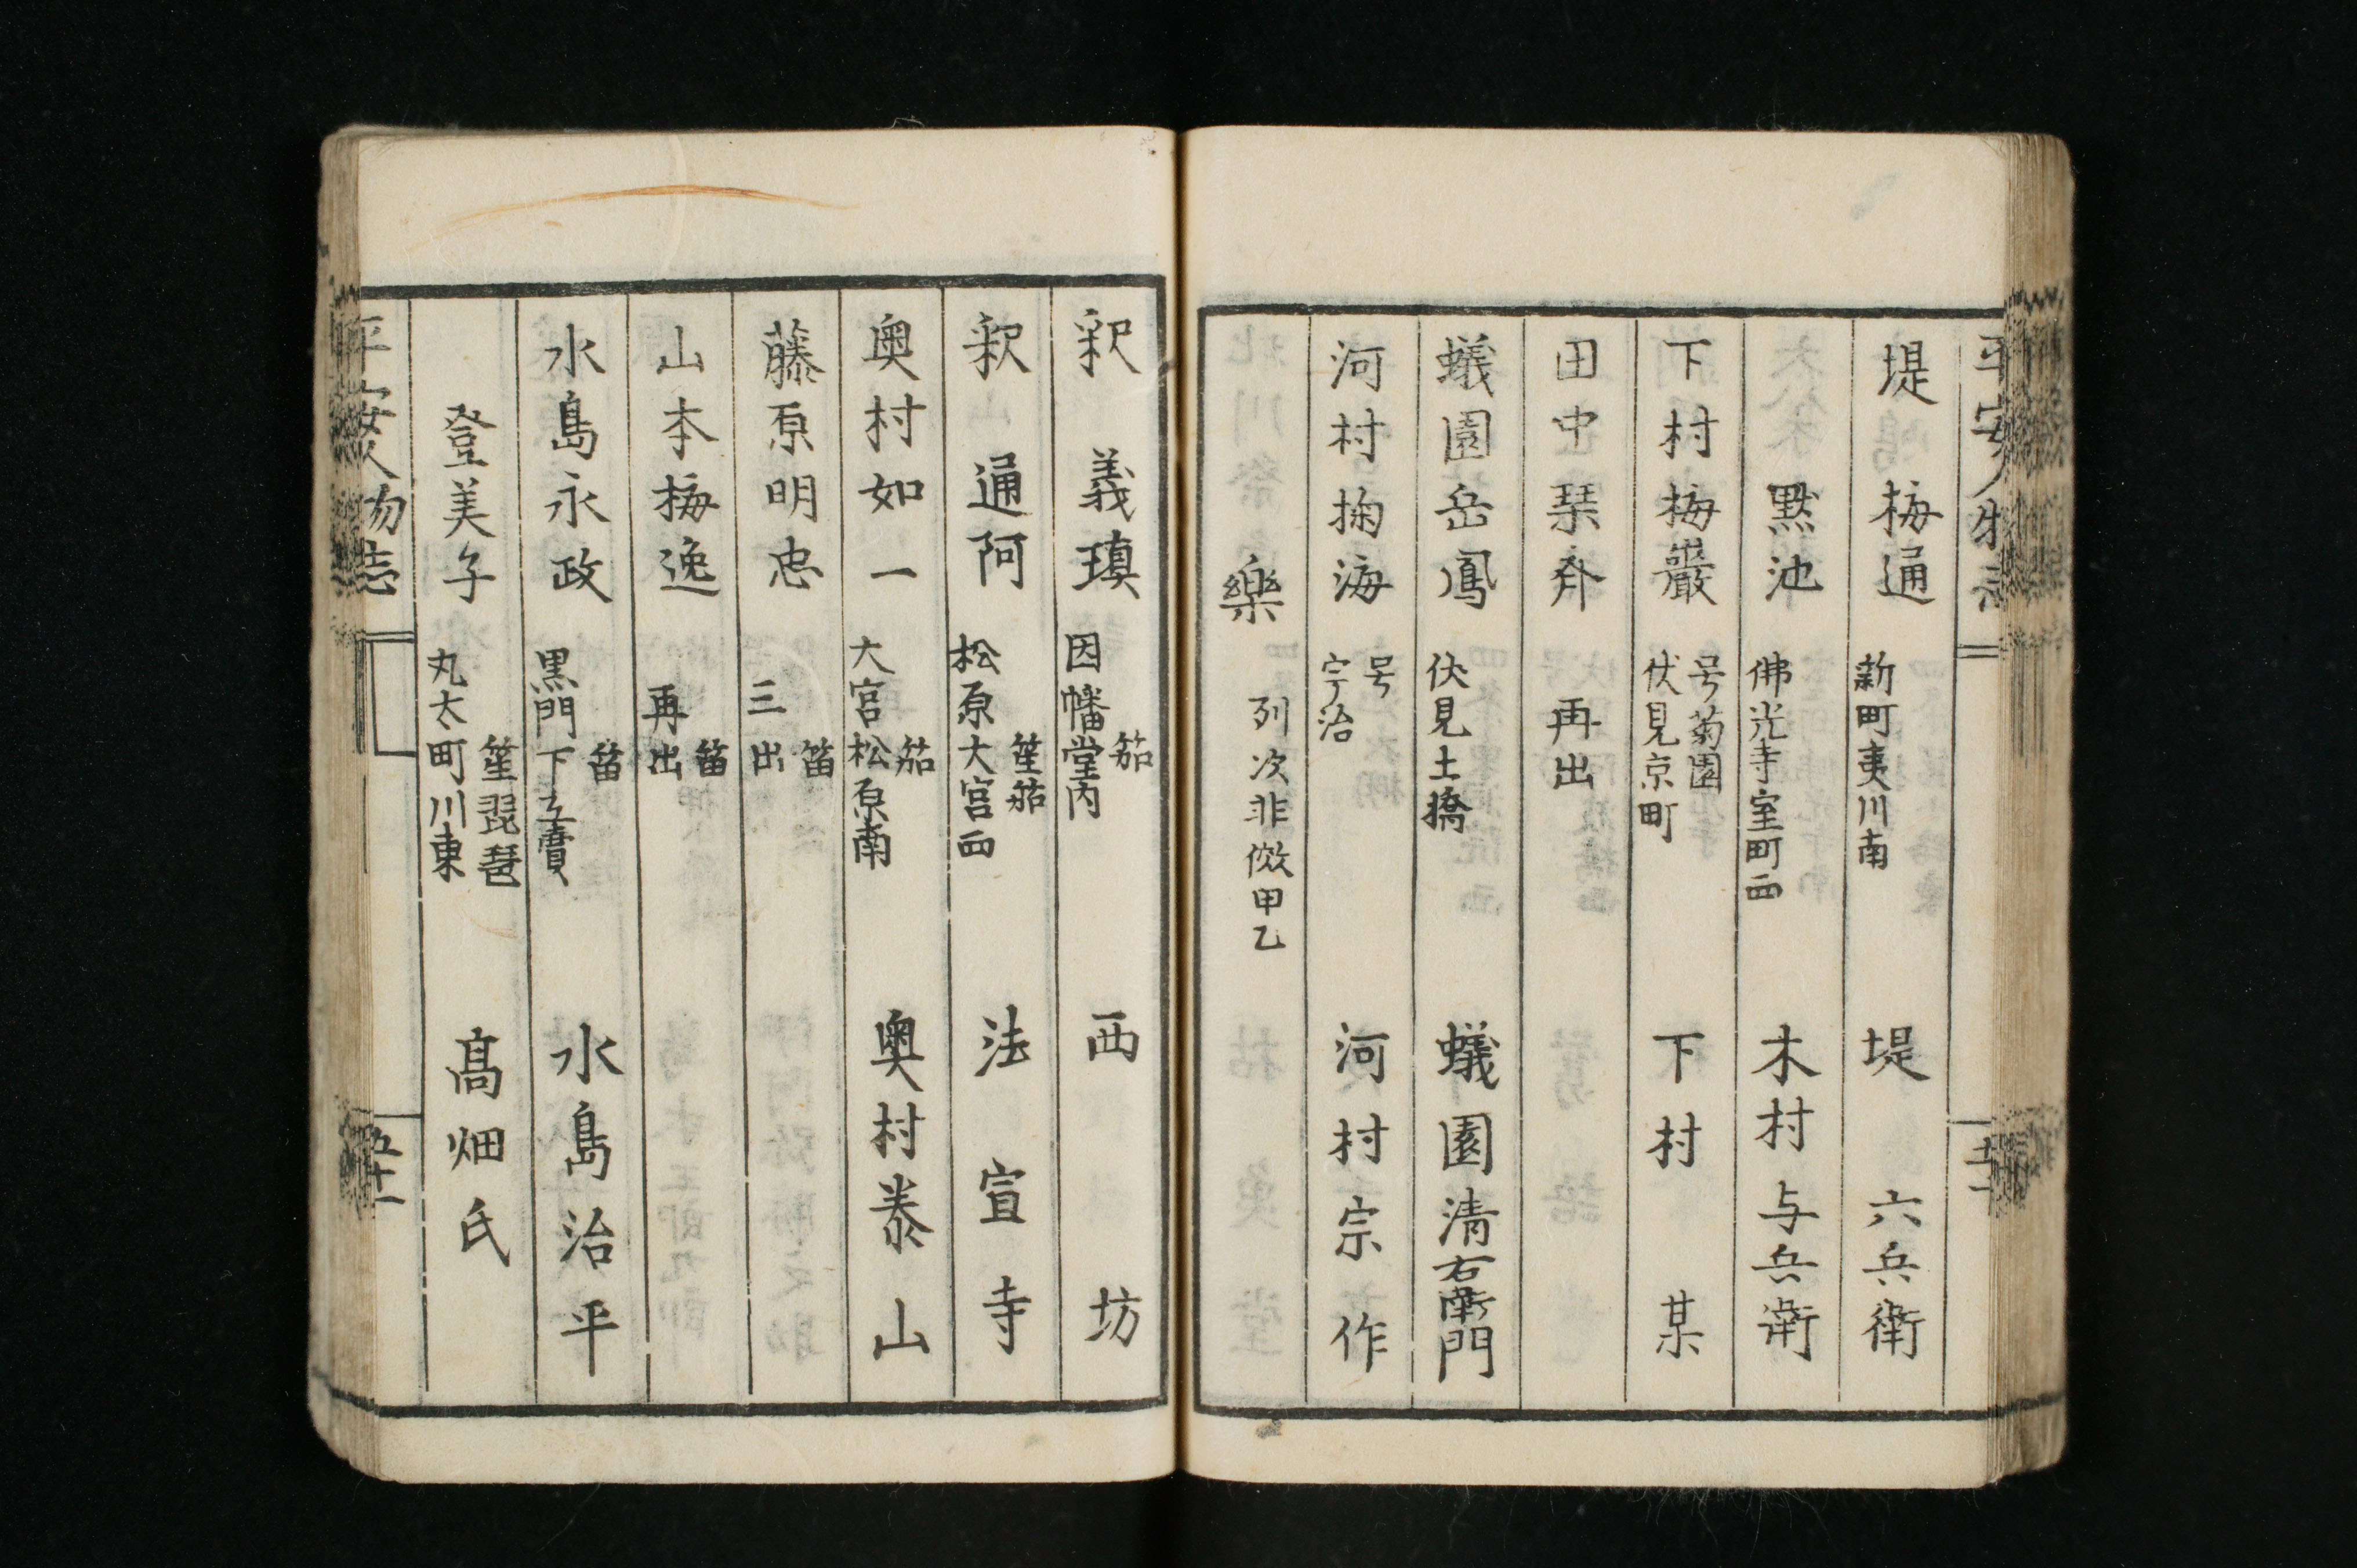 堤 梅通 新町夷川南 堤 六兵衛
黙池 佛光寺室町西 木村与兵衛
下村梅巖 号菊園 伏見京町 下村 某
田中琹斉 再出
蟻園岳鳳 伏見土橋 蟻園清右衛門
河村掬海 号 宇治 河村宗作
樂 列次非倣甲乙
釈 義瑱 笳 因幡堂内 西坊
釈 通阿 笙笳 松原大宮西 法宣寺
奥村如一 笳 大宮松原南 奥村泰山
藤原明忠 笛 三出
山本梅逸 笛 再出
水島永政 笛 黒門下立賣 水島治平
登美子 笙琵琶 丸太町川東 髙畑氏
平安人物志 五十一